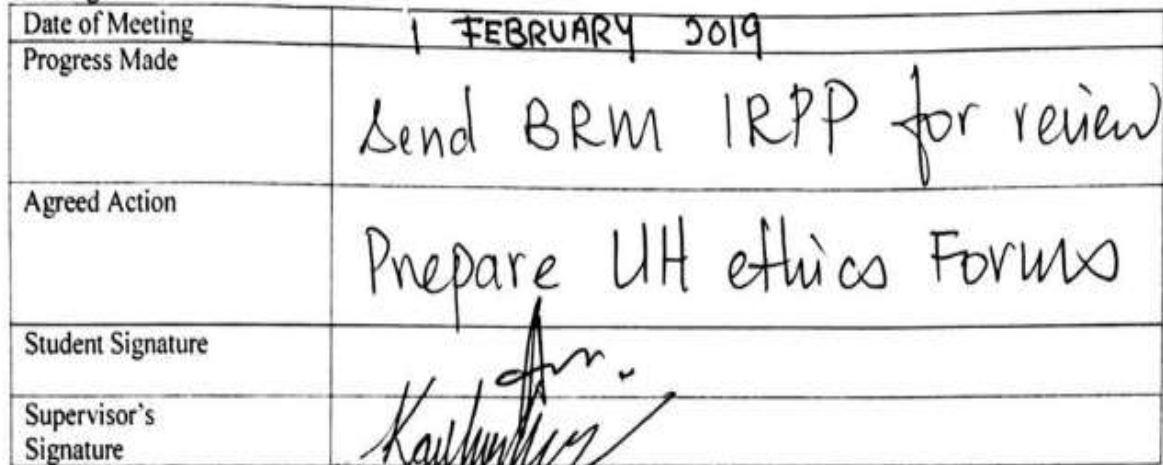 Date of Meeting 1 FEBRUARY 2019
Progress Made
Send BRM IRPP for review
Agreed Action
Prepare UH ethics Forms
Student Signature
Supervisor's
Signature